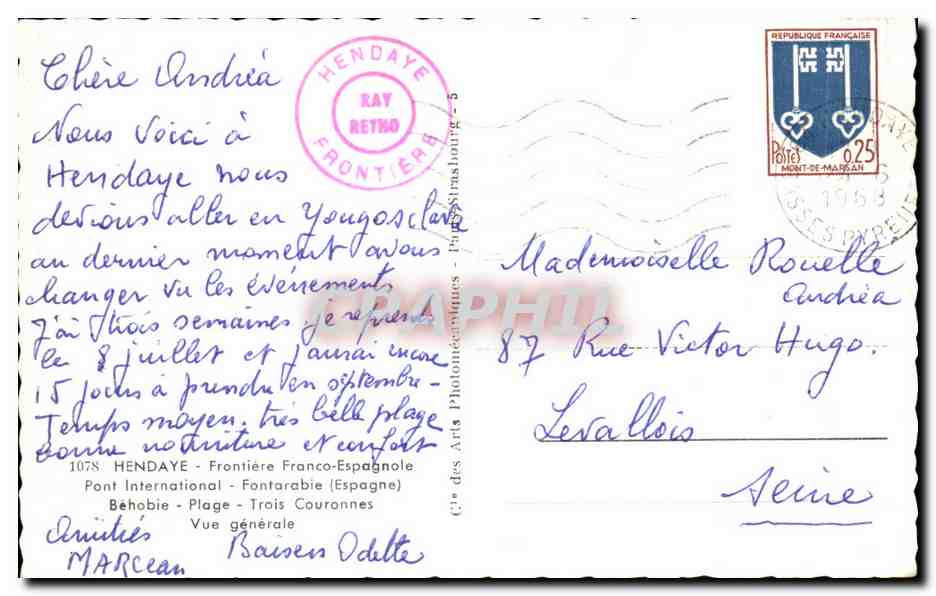 Chère Andréa
Nous voici à
Hendaye nous
devions aller en Yougoslavie
au dernier moment avons
changer vu les événements
j'ai trois semaines, je reprends
le 8 juillet et j'aurai encore
15 jours à prendre en septembre -
Temps moyen, très belle plage
bonne nourriture et confort
1078 HENDAYE - Frontière Franco-Espagnole
Pont International - Fontarabie (Espagne)
Béhobie - Plage - Trois Couronnes
Vue générale
Amitiés
MARCeau
Baisers Odette
HENDAYE
RAY
RETMO
FRONTIÈRE
Cie des Arts Photomécaniques - Paris-Strasbourg - 5
REPUBLIQUE FRANÇAISE
POSTES
0,25
MONT-DE-MARSAN
1968
Mademoiselle Rouelle
Andréa
87 Rue Victor Hugo.
Levallois
Seine
CPAPHIL